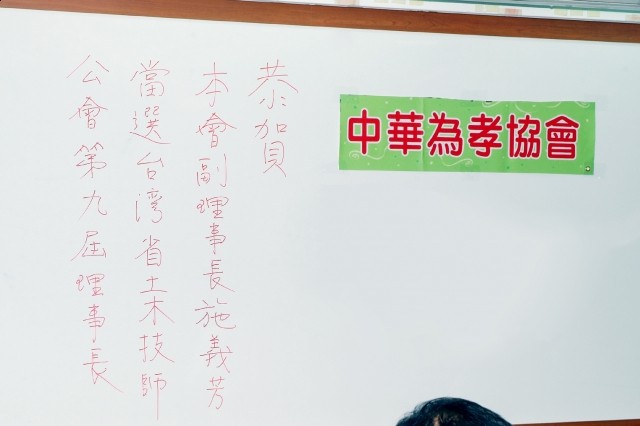 恭賀
本會副理事長施義芳
當選台湾省土木技師
公會第九屆理事長
中華為孝協會